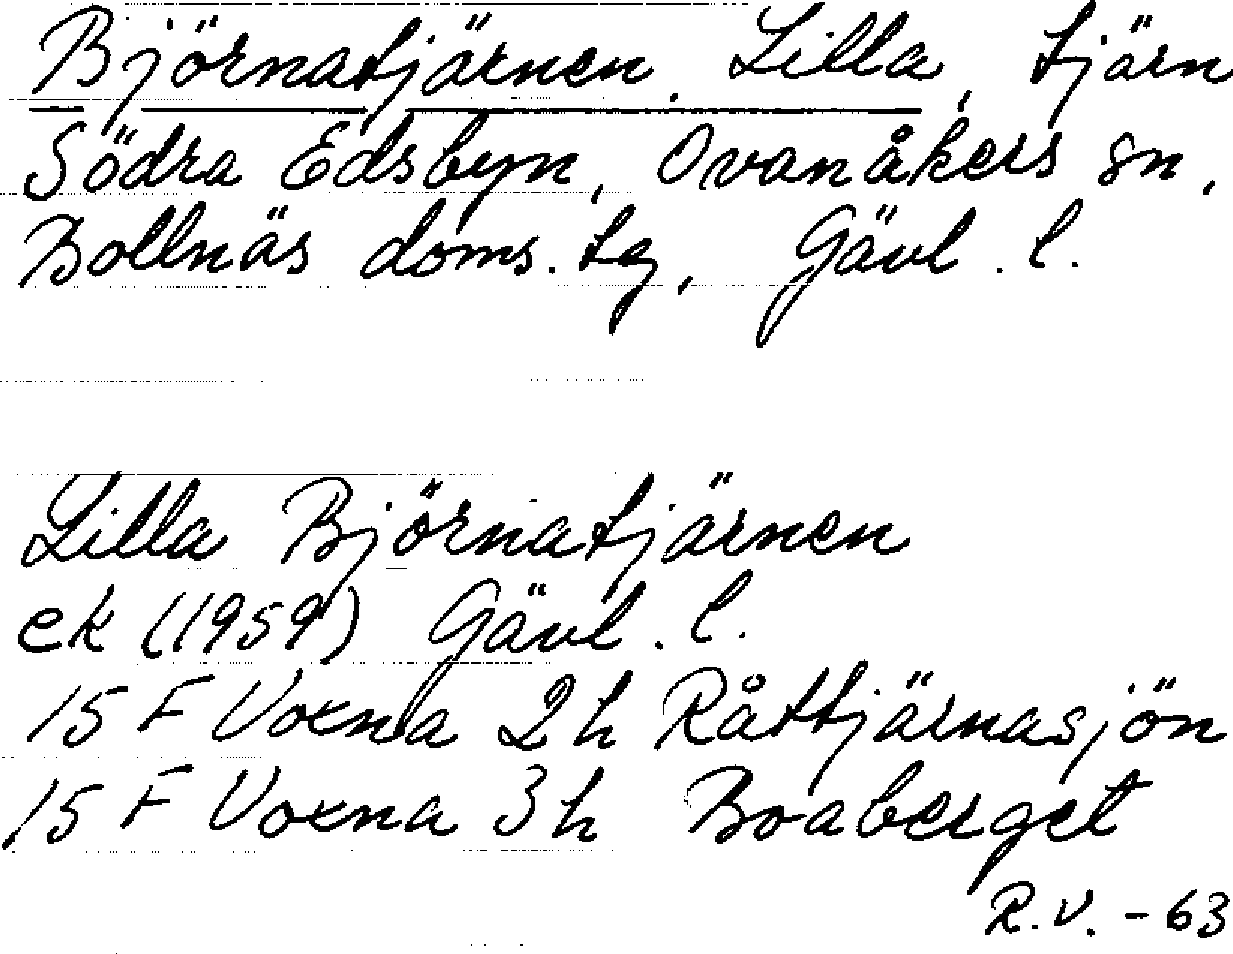 Björnatjärnen, Lilla, tjärn
Södra Edsbyn, Ovanåkers sn,
Bollnäs doms. tg, Gävl. l.
Lilla Björnatjärnen
ek (1959) Gävl. l.
15 F Voxna 2h Råttjärnasjön
15 F Voxna 3h Boaberget
R.V. - 63